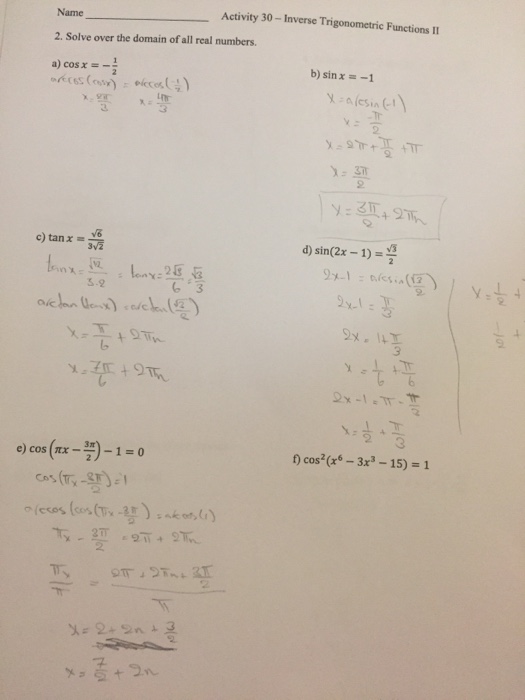 Name
Activity 30 – Inverse Trigonometric Functions II
2. Solve over the domain of all real numbers.
a) cos x = −1/2
arccos(cosx) = arccos(-1/2)
x = 2π/3 x = 4π/3
b) sin x = −1
x = arcsin(-1)
x = -π/2
x = 2π + π/2 + π
x = 3π/2
x = 3π/2 + 2πn
c) tan x = √6/3√2
tanx = √12/3.2 = tanx = 2√3/6 = √3/3
arctan(tanx) = arctan(√3/2)
x = π/6 + 2πn
x = 7π/6 + 2πn
d) sin(2x − 1) = √3/2
2x-1 = arcsin(√3/2)
2x-1 = π/3
2x = 1+π/3
x = 1/2 + π/6
2x-1 = π - π/3
x = 1/2 + π/3
x = 1/2 +
1/2 +
e) cos(πx − 3π/2) − 1 = 0
cos(πx - 3π/2) = 1
arccos(cos(πx - 3π/2)) = arccos(1)
πx - 3π/2 = 2π + 2πn
πx/π = 2π + 2πn + 3π/2 / π
x = 2 + 2n + 3/2
x = 7/2 + 2n
f) cos²(x⁶ − 3x³ − 15) = 1